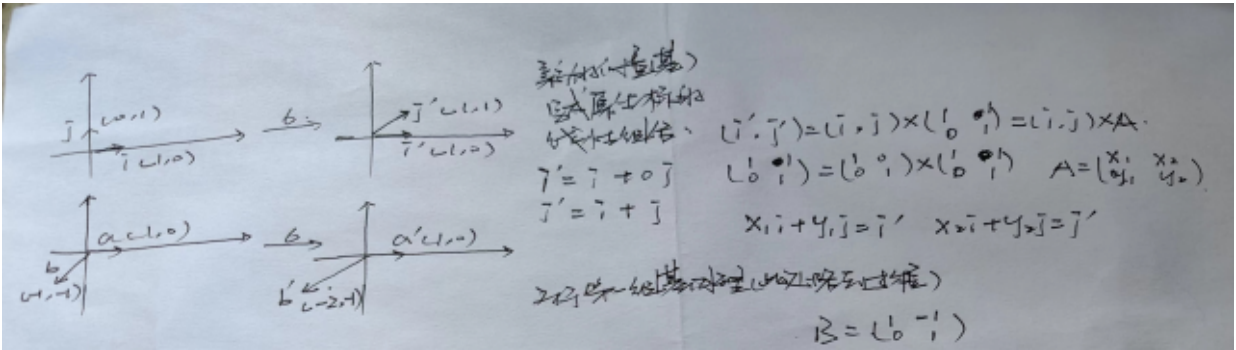 j (0,1)
i (1,0)
σ
j' (1,1)
i' (1,0)
a (1,0)
b
(-1,-1)
σ
a' (1,0)
b' (-2,-1)
基)
原坐标的
线性组合、
i' = i + 0j
j' = i + j
(i', j') = (i, j) × (1 1 0 1) = (i, j) × A.
(1 1 0 1) = (1 0 0 1) × (1 1 0 1) A = (x₁ x₂ y₁ y₂)
x₁i + y₁j = i' x₂i + y₂j = j'
对于另一组基
B = (1 -1 0 1)